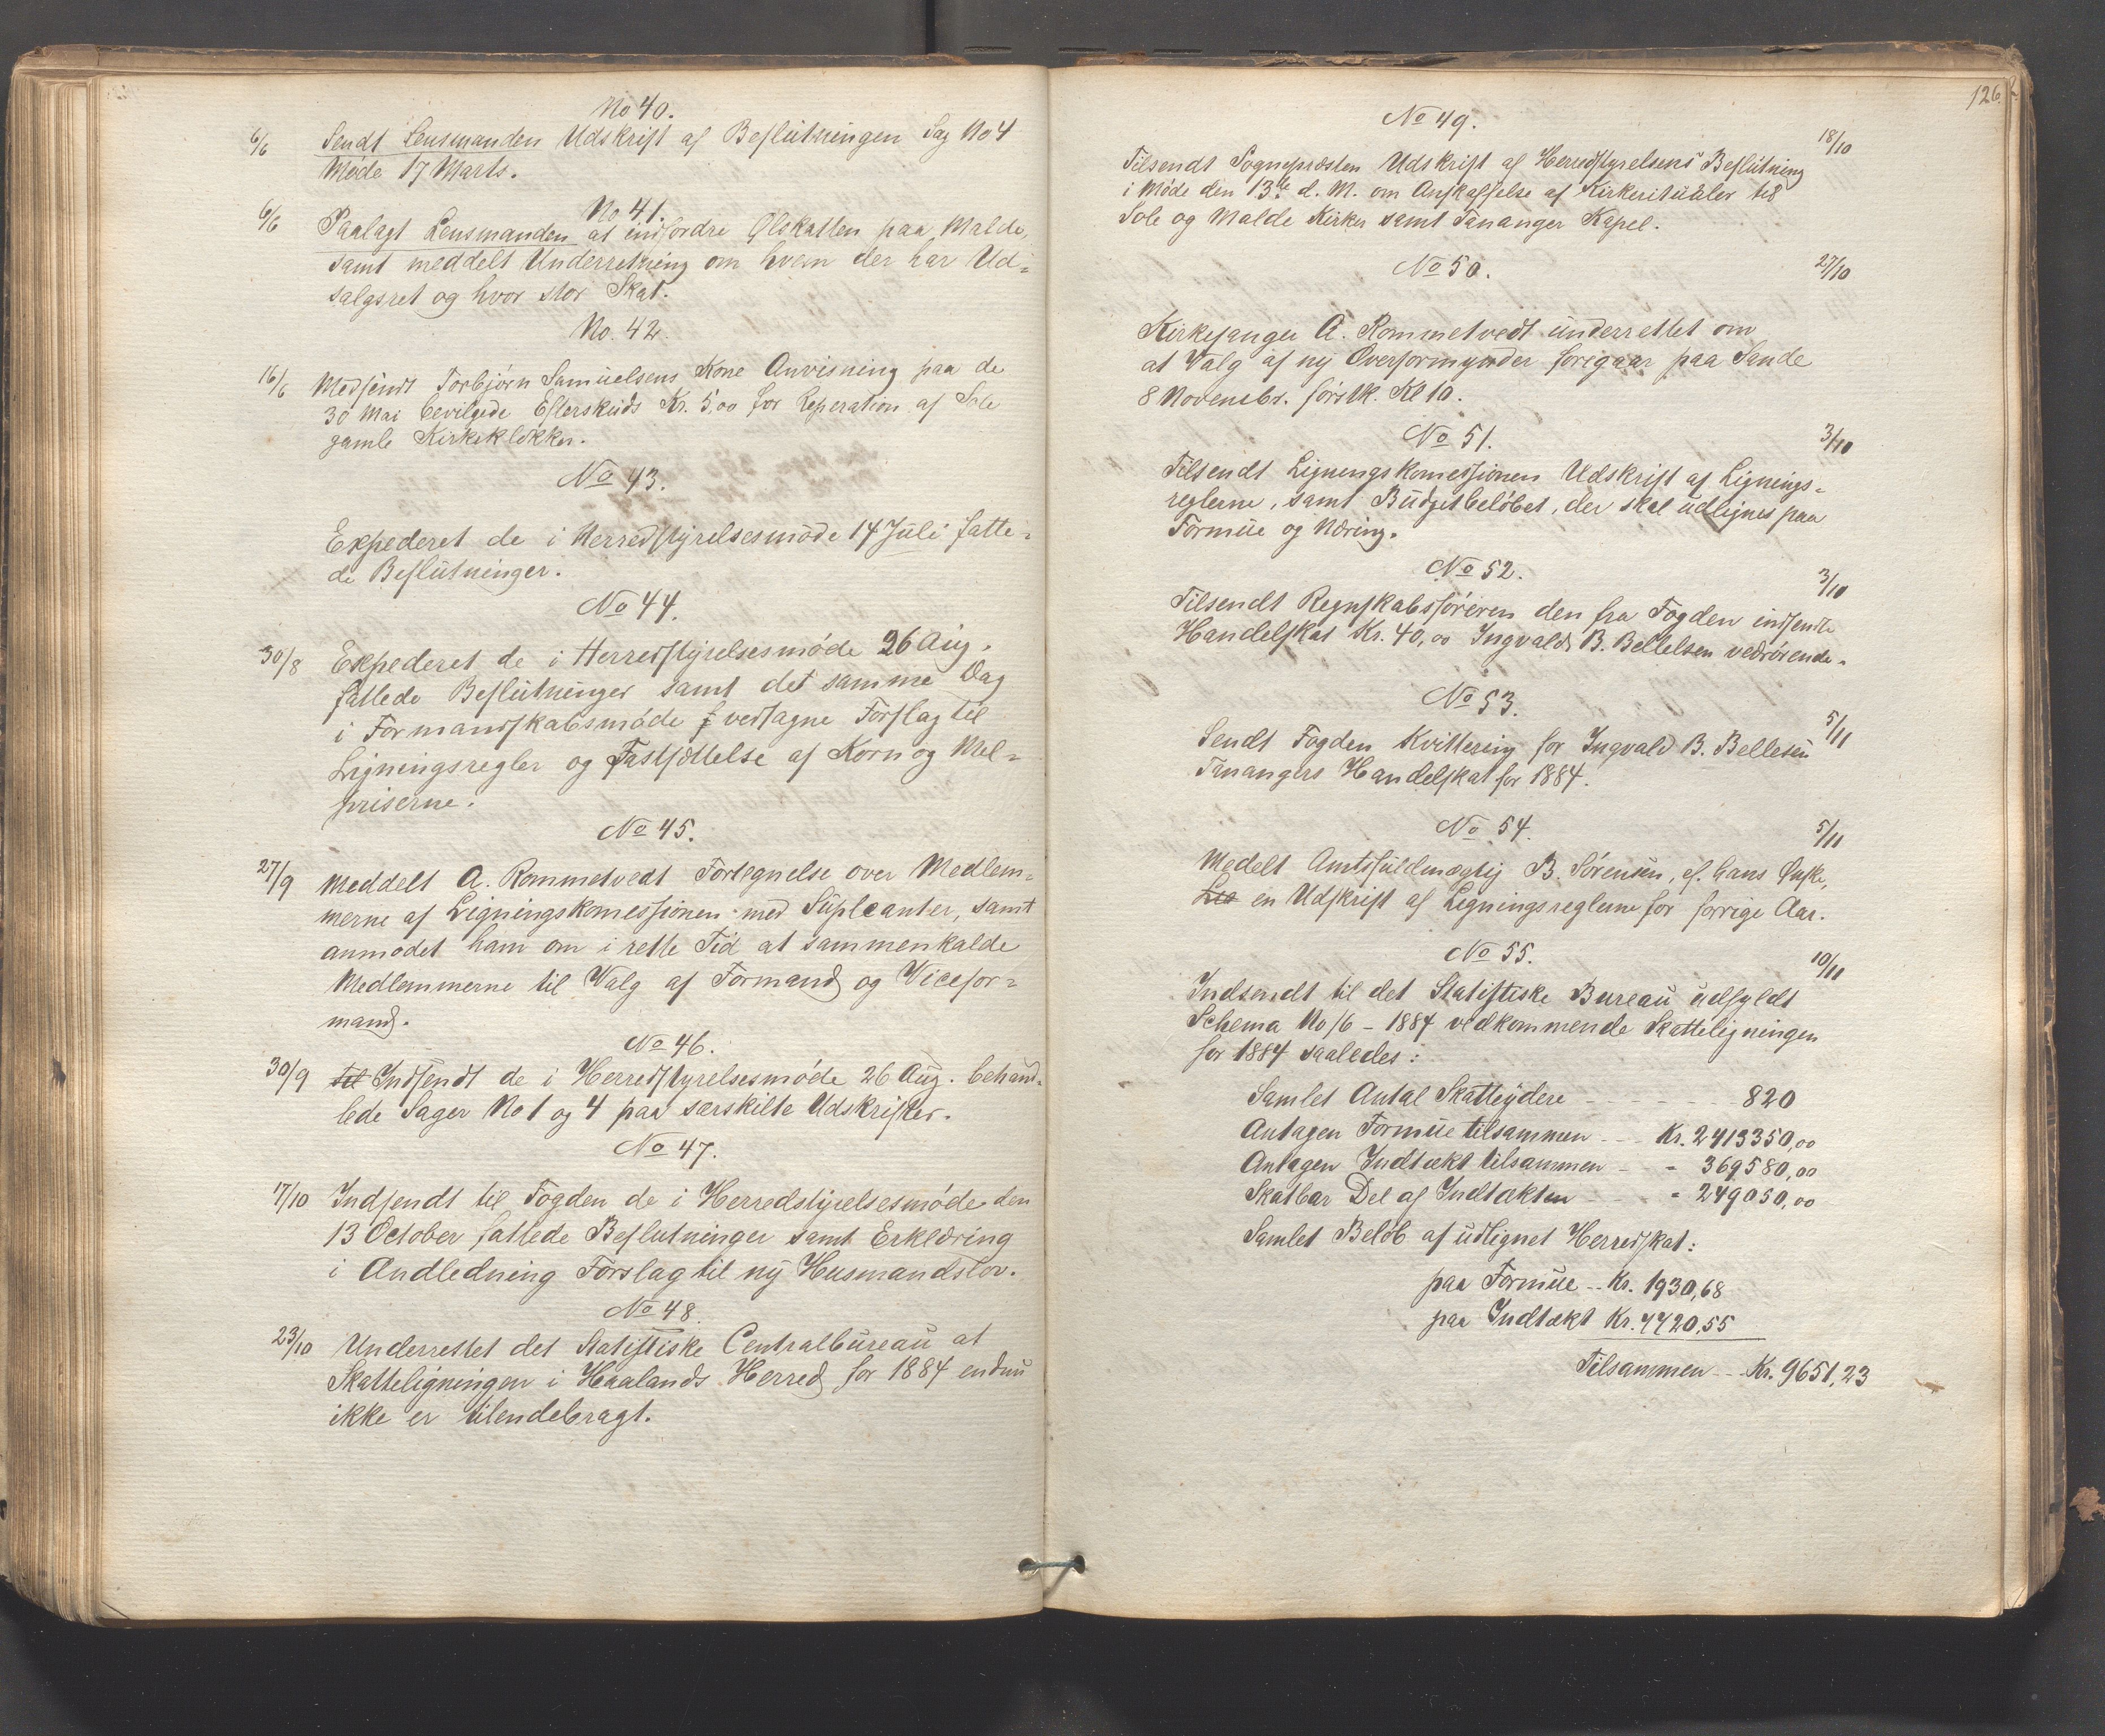 No 40.
6/6 Sendt Lensmanden Udskrift af Beslutningen Sag No 4
Møde 17 Marts.
No 41.
6/6 Paalagt Lensmanden at indfordre Ølskatten paa Malde,
samt meddelt Underretning om hvem der har Ud=
salgsret og hvor stor Skat.
No. 42.
16/6 Medsendt Torbjørn Samuelsens Kone Anvisning paa de
30 Mai bevilgede Efterskuds Kr. 5,00 for Reperation af Sole
gamle Kirkeklokker.
No 43.
Expederet de i Herredstyrelsesmøde 14 Juli fatte=
de Beslutninger.
No 44.
30/8 Expederet de i Herredstyrelsesmøde 26 Aug.
fattede Beslutninger samt det samme Dag
i Formandskabsmøde f vedtagne Forslag til
Ligningsregler og Fastsættelse af Korn og Mel=
priserne.
No 45.
27/9 Meddelt A. Rommetvedt Fortegnelse over Medlem=
merne af Ligningskomessionen med Supleanter, samt
anmodet ham om i rette Tid at sammenkalde
Medlemmerne til Valg af Formand og Vicefor=
mand.
No 46.
30/9 til Indsendt de i Herredstyrelsesmøde 26 Aug. behand=
lede Sager No 1 og 4 paa særskilte Udskrifter.
No 47.
17/10 Indsendt til Fogden de i Herredstyrelsesmøde den
13 October fattede Beslutninger samt Erklæring
i Andledning Forslag til ny Husmandslov.
No 48.
23/10 Underrettet det Statistiske Centralbureau at
Skatteligningen i Haalands Herred for 1884 endnu
ikke er tilendebragt.
126
No 49.
18/10
Tilsendt Sognepræsten Udskrift af Herredstyrelsens Beslutning
i Møde den 13de d. M. om Anskaffelse af Kirkeritualer til
Sole og Malde Kirker samt Tananger Kapel.
No 50.
27/10
Kirkesanger A. Rommetvedt underrettet om
at Valg af ny Overformynder foregaar paa Sande
8 Novembr. førstk. Kl 10.
No 51.
3/10
Tilsendt Ligningskomessionen Udskrift af Lignings=
reglerne, samt Budgetbeløbet, der skal udlignes paa
Formue og Næring.
No 52.
3/10
Tilsendt Regnskabsføreren den fra Fogden indsendte
Handelskat Kr. 40,00 Ingvald B. Bellelsen vedrørende.
No 53.
5/11
Sendt Fogden Kvittering for Ingvald B. Bellesen
Tanangers Handelskat for 1884.
No 54.
5/11
Medelt Amtsfuldmægtig B. Sørensen, ef. hans Ønske,
en Udskrift af Ligningsreglerne for forrige Aar.
No 55.
10/11
Indsendt til det Statistiske Bureau udfyldt
Schema No 16 - 1884 vedkommende Skatteligningen
for 1884 saaledes:
Samlet Antal Skatteydere - - - - - - 820
Antagen Formue tilsammen - - - Kr. 2413350,00
Antagen Indtækt tilsammen - - " 369580,00
Skatbar Del af Indtækten - - - " 249050,00
Samlet Beløb af udlignet Herredskat:
paa Formue -- Kr. 1930,68
paa Indtækt Kr. 7720,55
Tilsammen - - - Kr. 9651,23